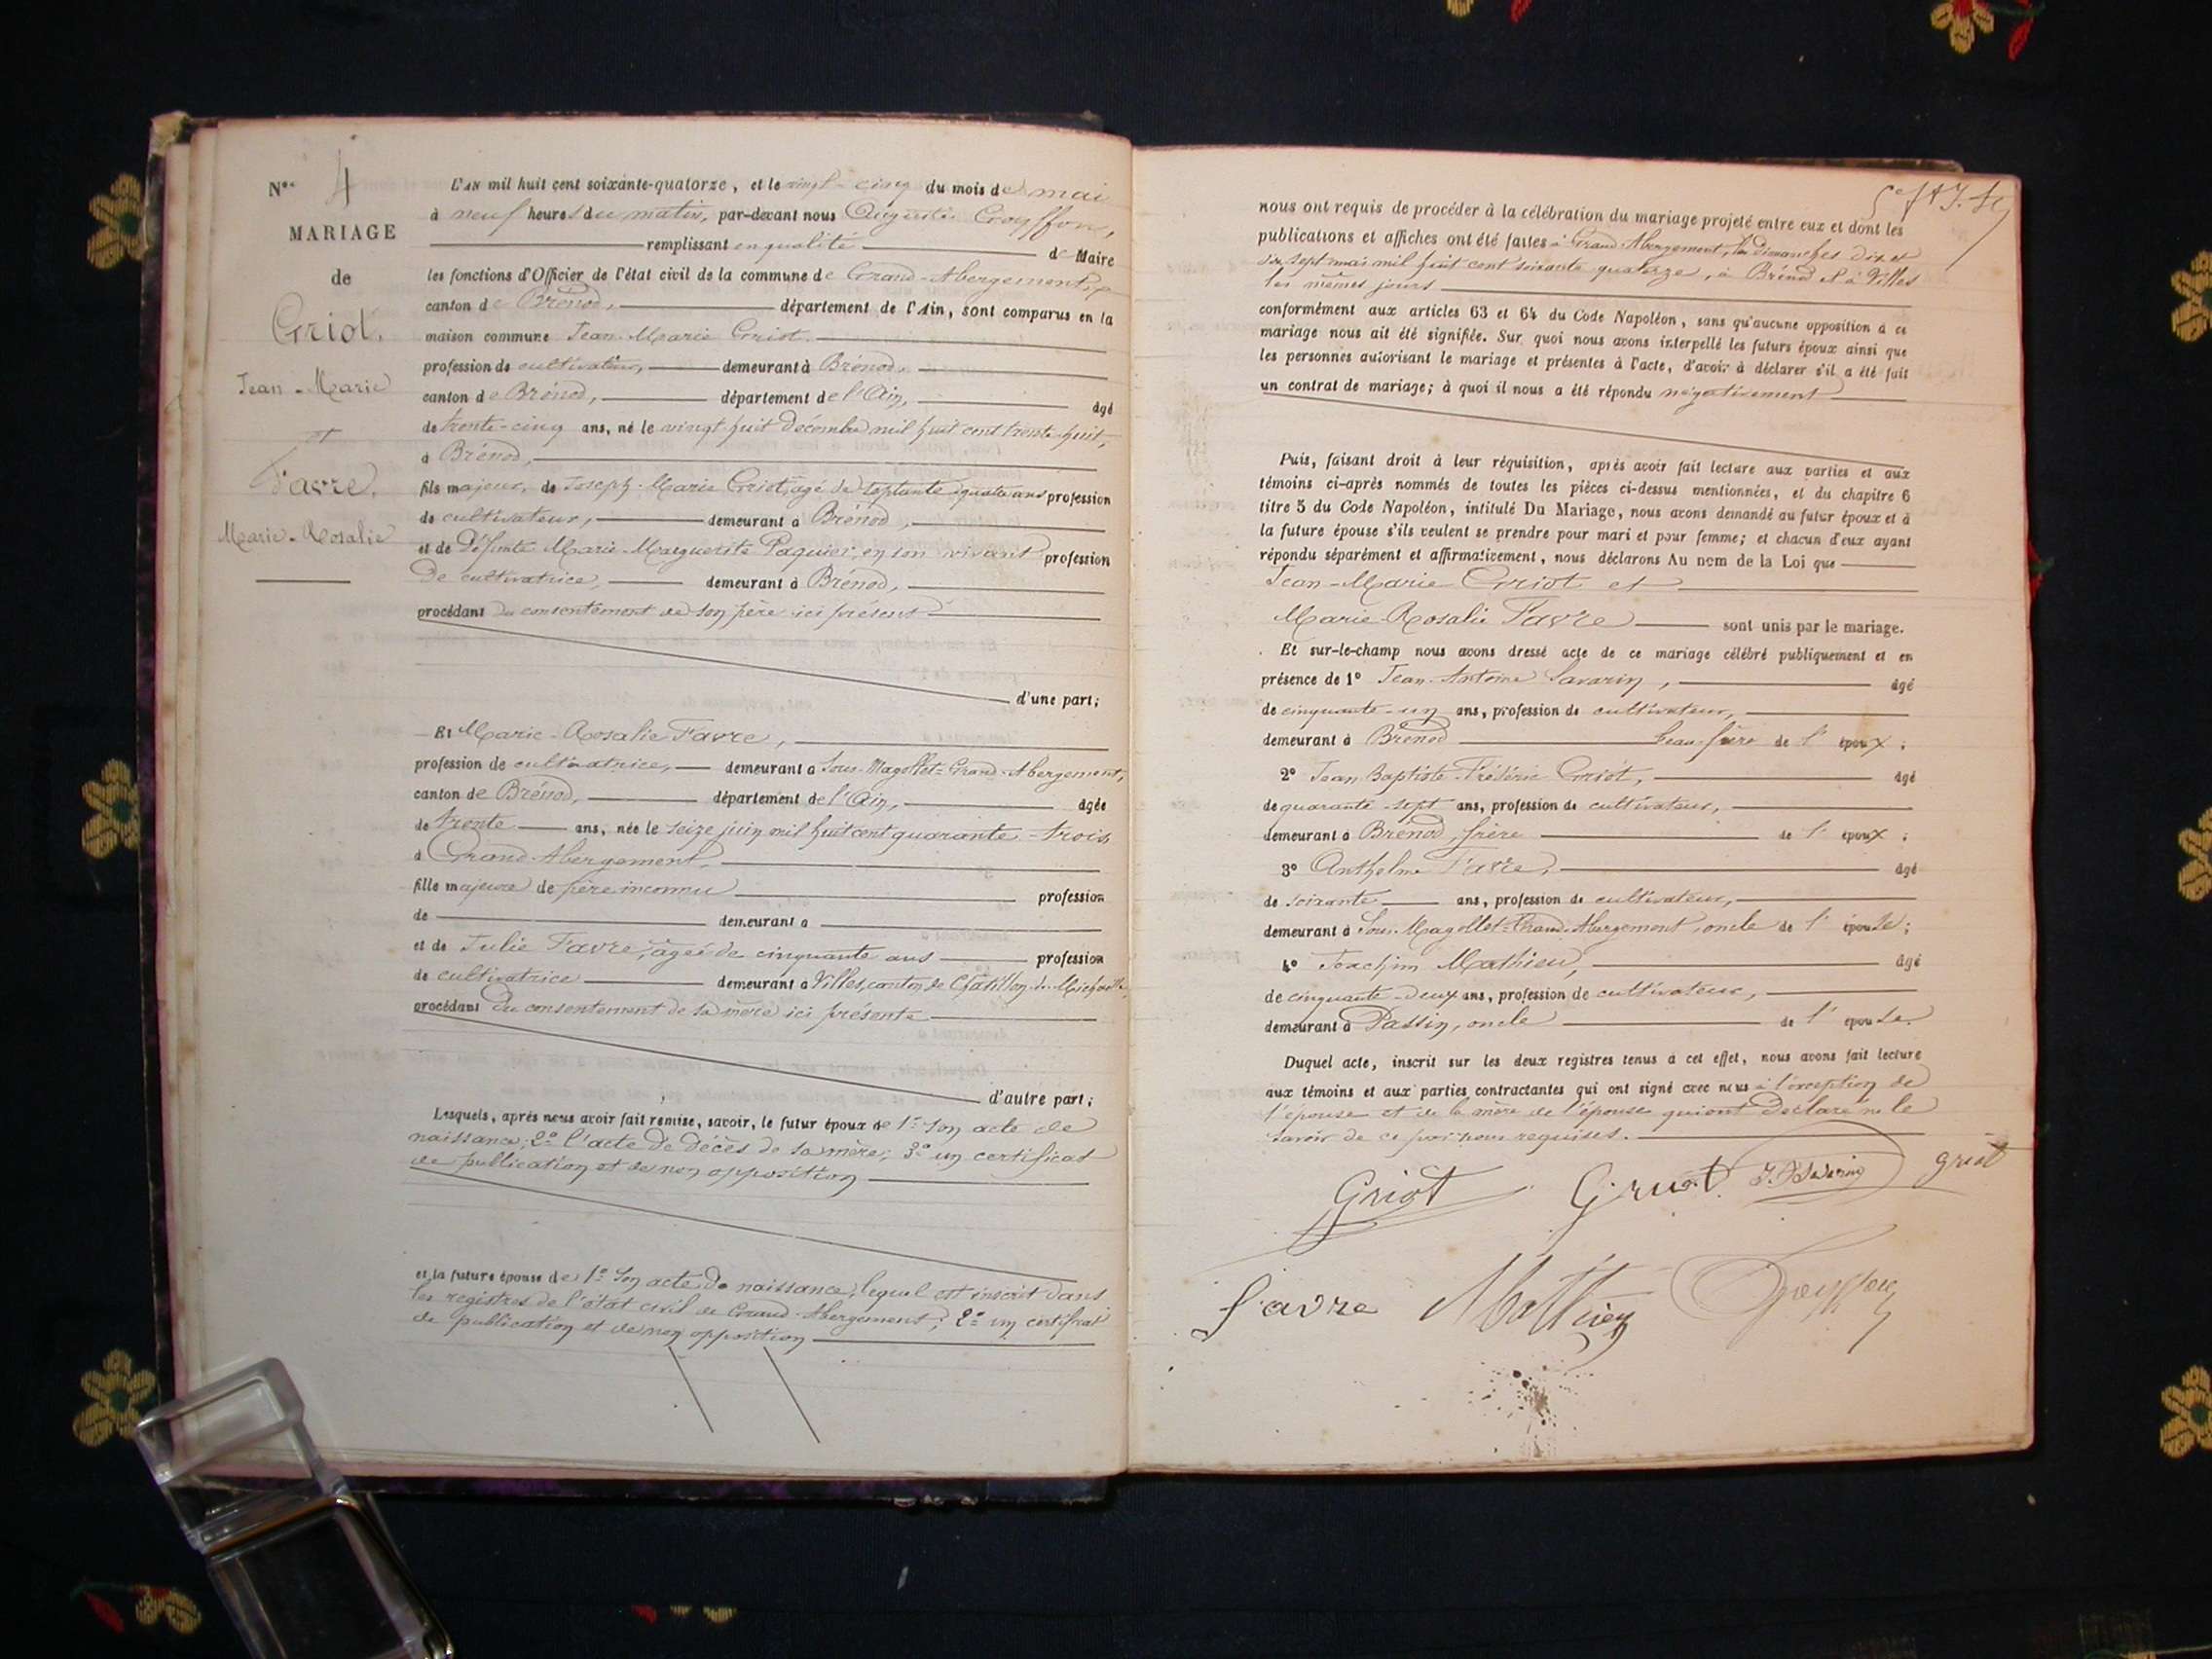 Nos 4
MARIAGE
de
Griot,
Jean-Marie
et
Favre,
Marie-Rosalie
L'AN mil huit cent soixante-quatorze, et le vingt-cinq du mois de mai
à neuf heures du matin, par-devant nous
remplissant en qualité de Maire
les fonctions d'Officier de l'état civil de la commune de Grand-Abergement,
canton de Brénod, département de l'Ain, sont comparus en la
maison commune Jean-Marie Griot
profession de cultivateur, demeurant à Brénod,
canton de Brénod, département de l'Ain, âgé
de trente-cinq ans, né le vingt-huit décembre mil huit cent trente-huit,
à Brénod,
fils majeur, de Joseph-Marie Griot, âgé de septante quatre ans profession
de cultivateur, demeurant à Brénod,
et de Défunte Marie-Marguerite Paquier, en son vivant profession
De cultivatrice, demeurant à Brénod,
procédant du consentement de son père ici présent
d'une part;
Et Marie-Rosalie Favre,
profession de cultivatrice, demeurant à Sous-Magollet-Grand-Abergement,
canton de Brénod, département de l'Ain, âgée
de trente ans, née le seize juin mil huit cent quarante-trois
à Grand-Abergement,
fille majeure de père inconnu profession
de demeurant à
et de Julie Favre, âgée de cinquante ans profession
de cultivatrice demeurant à Villes, canton de Chatillon-de-Michaille,
procédant du consentement de sa mère ici présente
d'autre part;
Lesquels, après nous avoir fait remise, savoir, le futur époux de 1° son acte de
naissance; 2° l'acte de décès de sa mère; 3° un certificat
de publication et de non opposition
et la future épouse de 1° son acte de naissance, lequel est inscrit dans
les registres de l'état civil de Grand-Abergement; 2° un certificat
de publication et de non opposition
nous ont requis de procéder à la célébration du mariage projeté entre eux et dont les
publications et affiches ont été faites à Grand-Abergement, les dimanches dix et
dix sept mai mil huit cent soixante quatorze, à Brénod et à Villes
les mêmes jours
conformément aux articles 63 et 64 du Code Napoléon, sans qu'aucune opposition à ce
mariage nous ait été signifiée. Sur quoi nous avons interpellé les futurs époux ainsi que
les personnes autorisant le mariage et présentes à l'acte, d'avoir à déclarer s'il a été fait
un contrat de mariage; à quoi il nous a été répondu négativement
Puis, faisant droit à leur réquisition, après avoir fait lecture aux parties et aux
témoins ci-après nommés de toutes les pièces ci-dessus mentionnées, et du chapitre 6
titre 5 du Code Napoléon, intitulé Du Mariage, nous avons demandé au futur époux et à
la future épouse s'ils veulent se prendre pour mari et pour femme; et chacun d'eux ayant
répondu séparément et affirmativement, nous déclarons Au nom de la Loi que
Jean-Marie Griot et
Marie-Rosalie Favre sont unis par le mariage.
Et sur-le-champ nous avons dressé acte de ce mariage célébré publiquement et en
présence de 1° Jean-Antoine Savarin, âgé
de cinquante-un ans, profession de cultivateur,
demeurant à Brénod beau-frère de l'époux;
2° Jean-Baptiste-Frédéric Griot, âgé
de quarante-sept ans, profession de cultivateur,
demeurant à Brénod, frère de l'époux;
3° Anthelme Favre, âgé
de soixante ans, profession de cultivateur,
demeurant à Sous-Magollet-Grand-Abergement, oncle de l'épouse;
4° Joachim Mathieu, âgé
de cinquante-deux ans, profession de cultivateur,
demeurant à Passin, oncle de l'épouse.
Duquel acte, inscrit sur les deux registres tenus à cet effet, nous avons fait lecture
aux témoins et aux parties contractantes qui ont signé avec nous à l'exception de
l'épouse et de la mère de l'épouse qui ont Déclaré ne le
savoir de ce par nous requises.
Griot Griot J. A Savarin griot
favre Mathieu